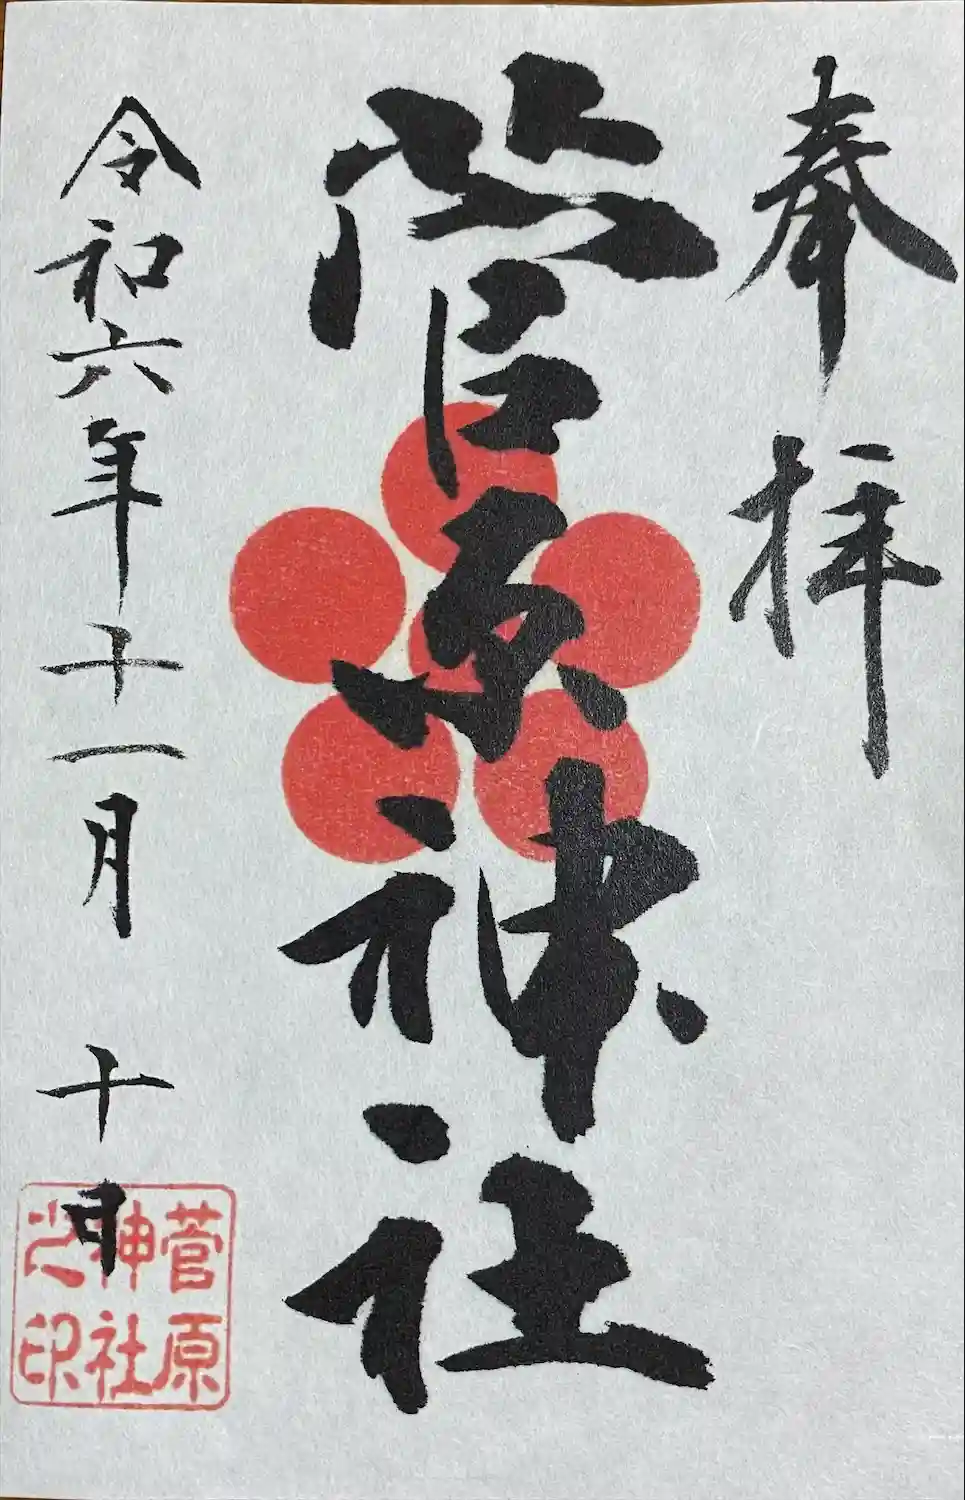 奉拝
菅原神社
令和六年十一月十日
菅原
神社
之印